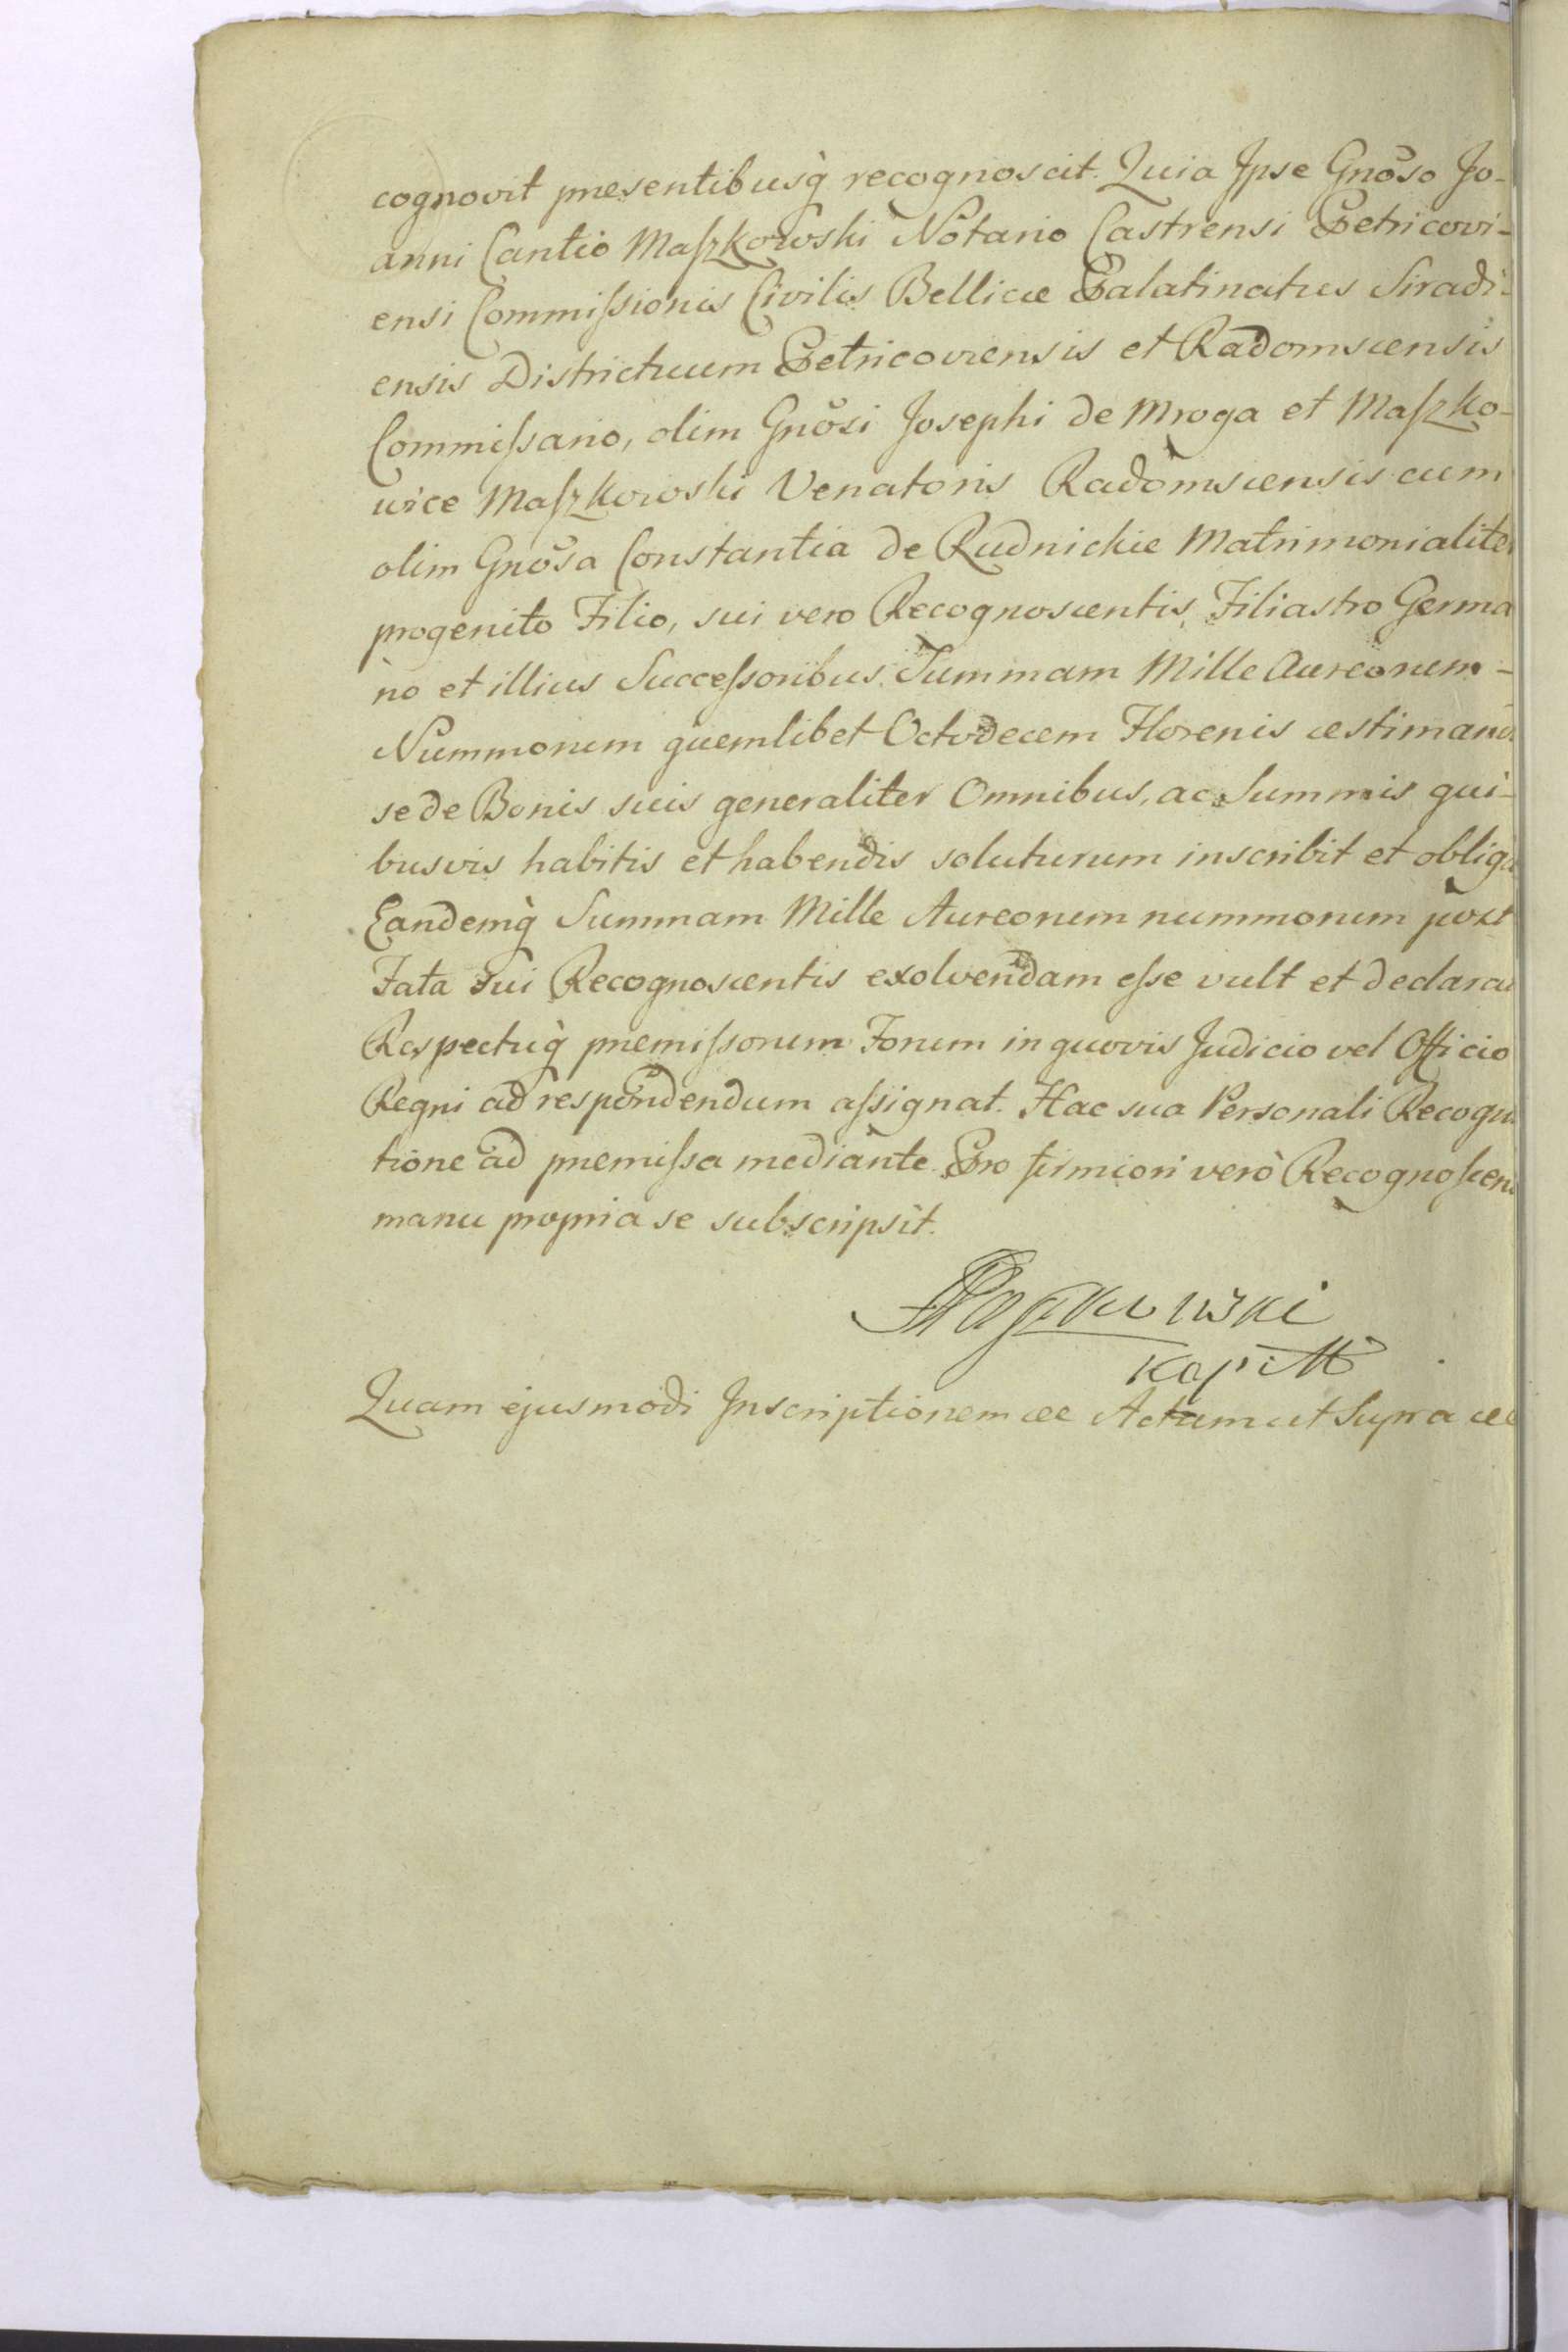 cognovit presentibusq̀ recognoscit. Quia Jpse Gnõso Jo-
anni Cantio Maſzkowski Notario Castrensi Petricovi-
ensi Commiſsionis Civilis Bellicæ Palatinatus Siradi-
ensis Districtuum Petricoviensis et Radomscensis
Commiſsario, olim Gnõsi Josephi de Mroga et Maſzko-
wice Maſzkowski Venatoris Radomscensis cum
olim Gnõsa Constantia de Rudnickie Matrimonialiter
progenito Filio, sui vero Recognoscentis, Filiastro Germa
no et illius Succeſsoribus Summam Mille Aureorum -
Nummorum quemlibet Octodecem Florenis æstimand
se de Bonis suis generaliter Omnibus, ac Summis qui-
busvis habitis et habendis soluturum inscribit et obliga
Eandemq̀ Summam Mille Aureorum nummorum post
Fata sui Recognoscentis exolvendam eſse vult et declarat
Respectuq̀ premiſsorum Forum in quovis Judicio vel Officio
Regni ad respondendum aſsignat. Hac sua Personali Recogni
tione ad premiſsa mediante. Pro firmiori verò Recognoſcens
manu propria se subscripsit.
Maſzkowski
Kapitt
Quam ejusmodi Jnscriptionem ee Actum ut Supra ee